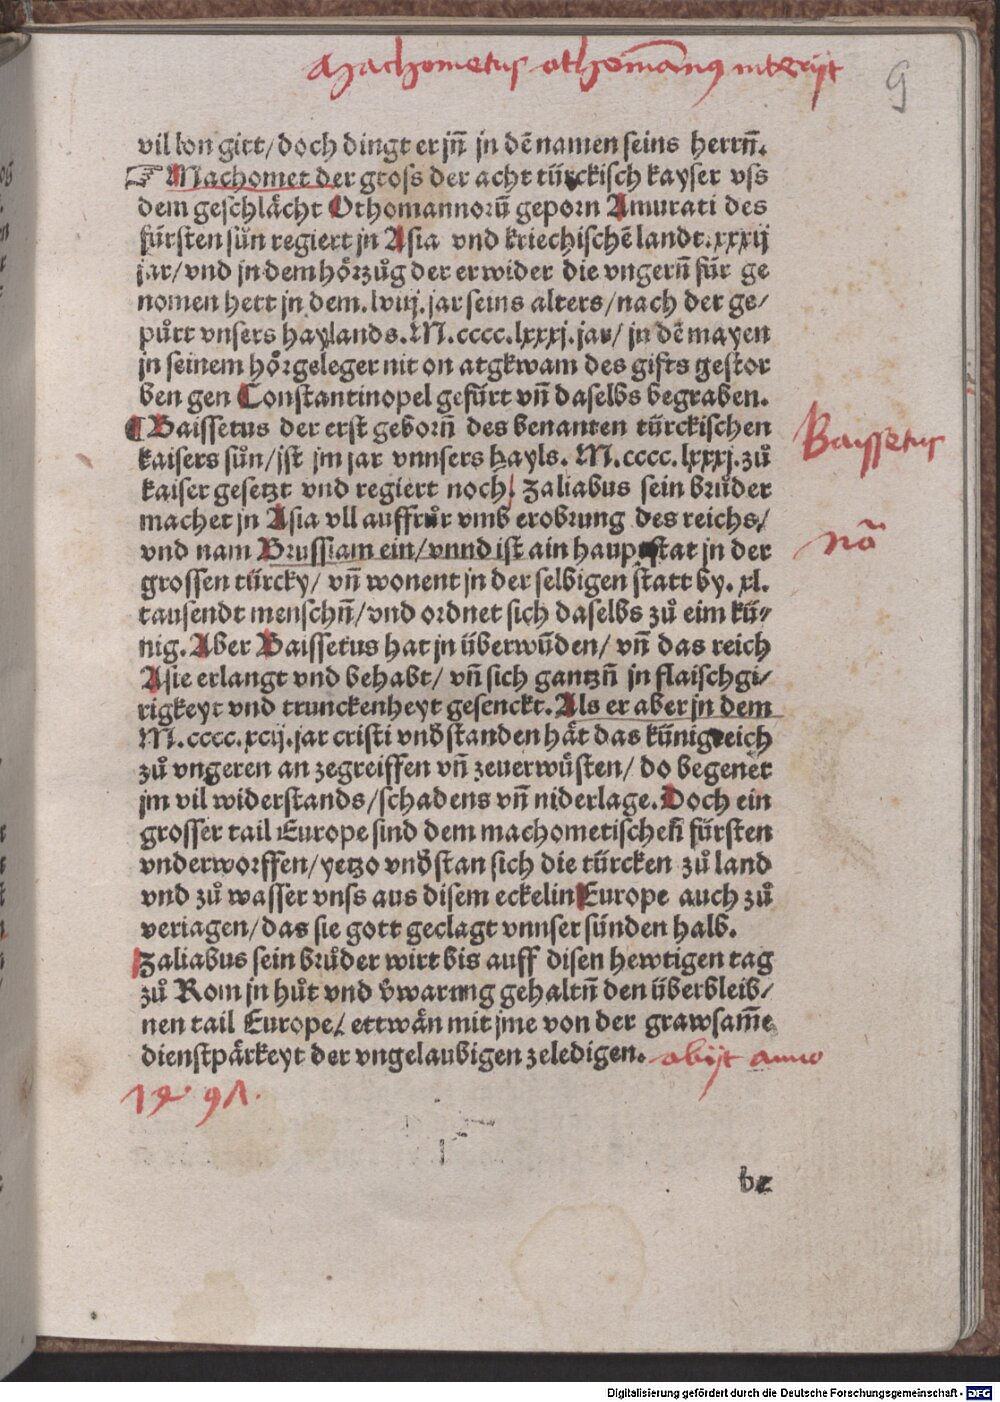 Machometus othomāngꝰ interijt
9
vil lon gitt/doch dingt er jñ jn dē namen seins herrñ.
☞ Machomet der gross der acht türckisch kayser vss
dem geschlächt Othomannorū geporn Amurati des
fürsten sůn regiert jn Asia vnd kriechischē landt.xxxij
jar/vnd jn dem hörzůg der er wider die vngerñ für ge
nomen hett jn dem.lviij.jar seins alters/nach der ge/
pürt vnsers haylands.M.cccc.lxxxj.jar/ jn dē mayen
jn seinem hörgeleger nit on atgkwam des gifts gestor
ben gen Constantinopel gefürt vñ daselbs begraben.
¶ Baissetus der erst geborñ des benanten türckischen
kaisers sůn/jst jm jar vnnsers hayls. M.cccc.lxxxj.zů
kaiser gesetzt vnd regiert noch/ Zaliabus sein brůder
machet jn Asia vll auffrůr vmb erobrung des reichs/
vnd nam Brussiam ein/vnnd ist ain hauptstat jn der
grossen türcky/ vñ wonent jn der selbigen statt by. xl.
tausendt menschñ/vnd ordnet sich daselbs zů eim kü/
nig. Aber Baissetus hat jn überwūden/ vñ das reich
Asie erlangt vnd behabt/ vñ sich gantzñ jn flaischgi/
rigkeyt vnd trunckenheyt gesenckt. Als er aber jn dem
M.cccc.xcij.jar cristi vnd̄standen hät das künigreich
zů vngeren an zegreiffen vñ zeuerwüsten/ do begenet
jm vil widerstands/schadens vñ niderlage. Doch ein
grosser tail Europe sind dem machometischeñ fürsten
vnderworffen/yetzo vnd̄stan sich die türcken zů land
vnd zů wasser vnss aus disem eckelin Europe auch zů
veriagen/das sie gott geclagt vnnser sünden halb.
Zaliabus sein brůder wirt bis auff disen hewtigen tag
zů Rom jn hůt vnd v̄warung gehaltñ den überbleib/
nen tail Europe/ ettwän mit jme von der grawsam̄e
dienstpärkeyt der vngelaubigen zeledigen. obijt anno
1491.
Baijssetus
nōa
be
Digitalisierung gefördert durch die Deutsche Forschungsgemeinschaft - DFG